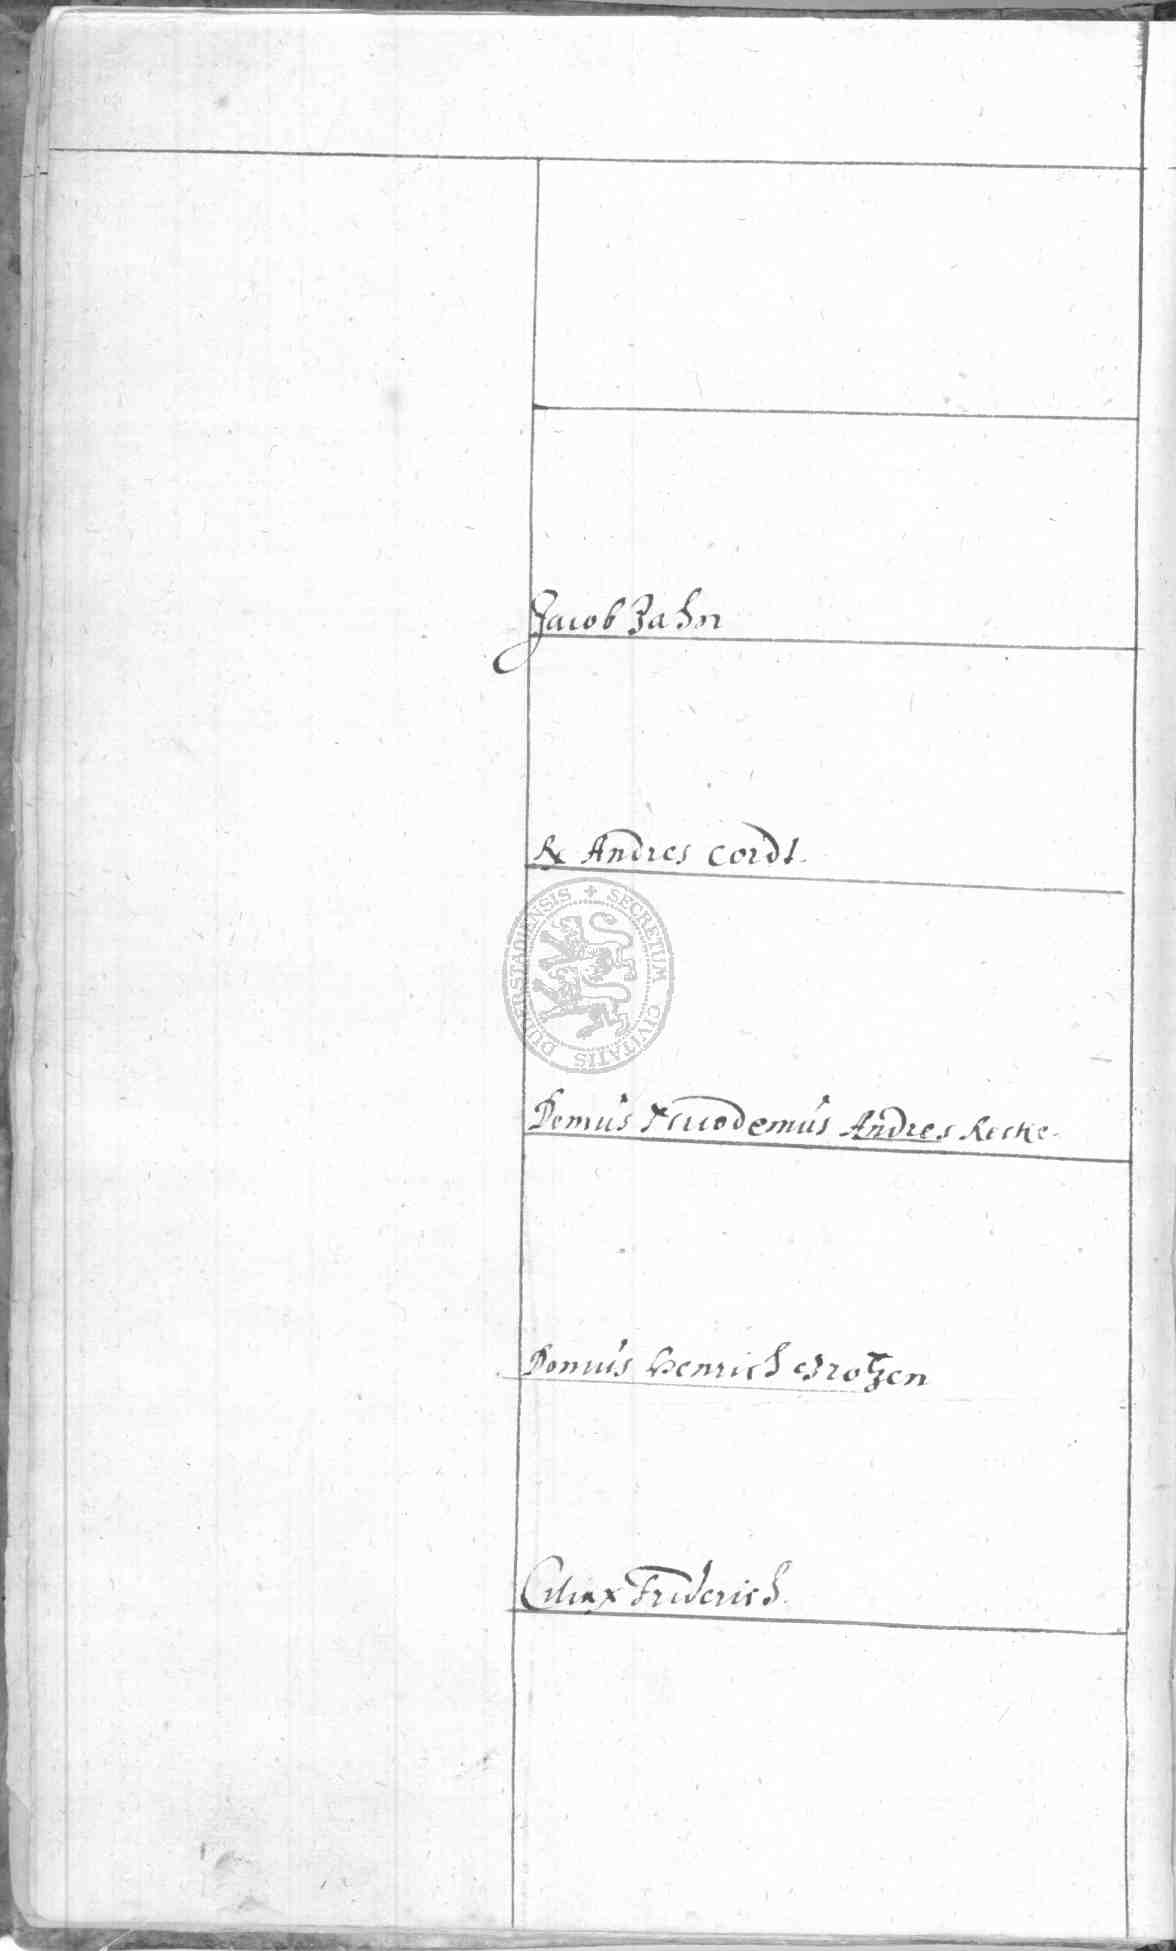 Jacob Zahn
Andres Cordt.
SECRETUM CIVITATIS DUDERSTADIENSIS +
Domus Andres Recke.
Domus Henrich Grotzen
Ciliax Friderich.